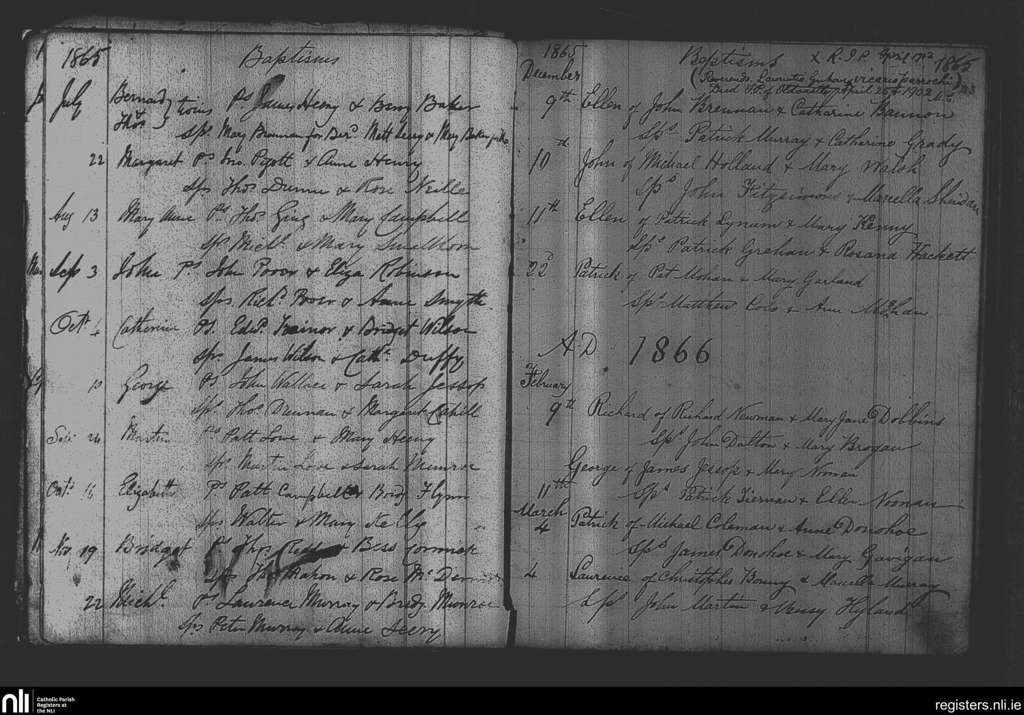 1865 Baptisms
July Bernard & Thos. } twins Ps James Henry & Bessy Baker
Sps Mary Brennan for Berd. Matt Leery & Mary Baker for Tho.
22 Margaret Ps Jno. Pyott & Anne Henry
Sps Thos. Dunne & Rose Neille
Aug 13 Mary Anne Ps Thos. Gray & Mary Campbell
Sps Michl. & Mary
Sep 3 John Ps John Power & Eliza Robinson
Sps Richd. Power & Anne Smythe
Oct Catherine Ps. Edwd. Trainor & Bridget Wilson
Sps James Wilson & Cath. Duffy
10 George Ps. John Wallace & Sarah Jessop
Sps. Thos. Dunnan & Margaret Cahill
24 Martin Ps Patt Lowe & Mary Henry
Sps Martin Lowe & Sarah Munroe
Oct. 15 Elizabeth Ps Patt Campbell & Bridg Flynn
Sps Walter & Mary Kelly
Nov. 19 Bridget Ps Thos & Bess Cormack
Sps Thos Mahon & Rose Mc
22 Michl. Ps Laurence Murray & Bridg Munroe
Sps Peter Murray & Anne Leery
1865 Baptisms + R.I.P. April 1902 1865
December
9th Ellen of John Brennan & Catharine Bannon
Sps. Patrick Murray & Catharine Grady
10th John of Michael Holland & Mary Walsh
Sps. John Fitzsimons & Marcella Sheridan
11th Ellen of Patrick Lynam & Mary Kenny
Sps. Patrick Grehan & Rosanna Hackett
22d Patrick of Pat Mahan & Mary Garland
Sps. Matthew & Ann
A.D. 1866
February
9th Richard of Richard Newman & Mary Jane Dobbins
Sps. John Dalton & Mary Brogan
11th George of James Jessop & Mary Noonan
Sps. Patrick Tiernan & Ellen Noonan
March
4 Patrick of Michael Cleman & Anne Donohoe
Sps. James Donohoe & Mary Gavigan
4 Laurence of Christopher & Marcella Murray
Sps. John Martin & Hyland
nli Catholic Parish Registers at the NLI
registers.nli.ie